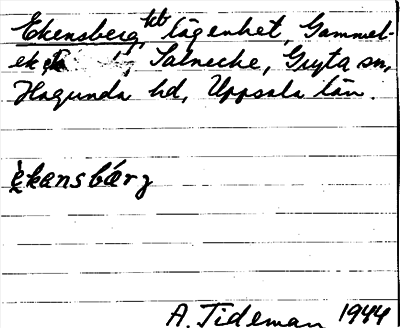 Ekensberg, tkt lägenhet, Gammel-
ek, Salnecke, Gryta sn,
Hagunda hd, Uppsala län.
èkansbærg
A. Tideman 1944